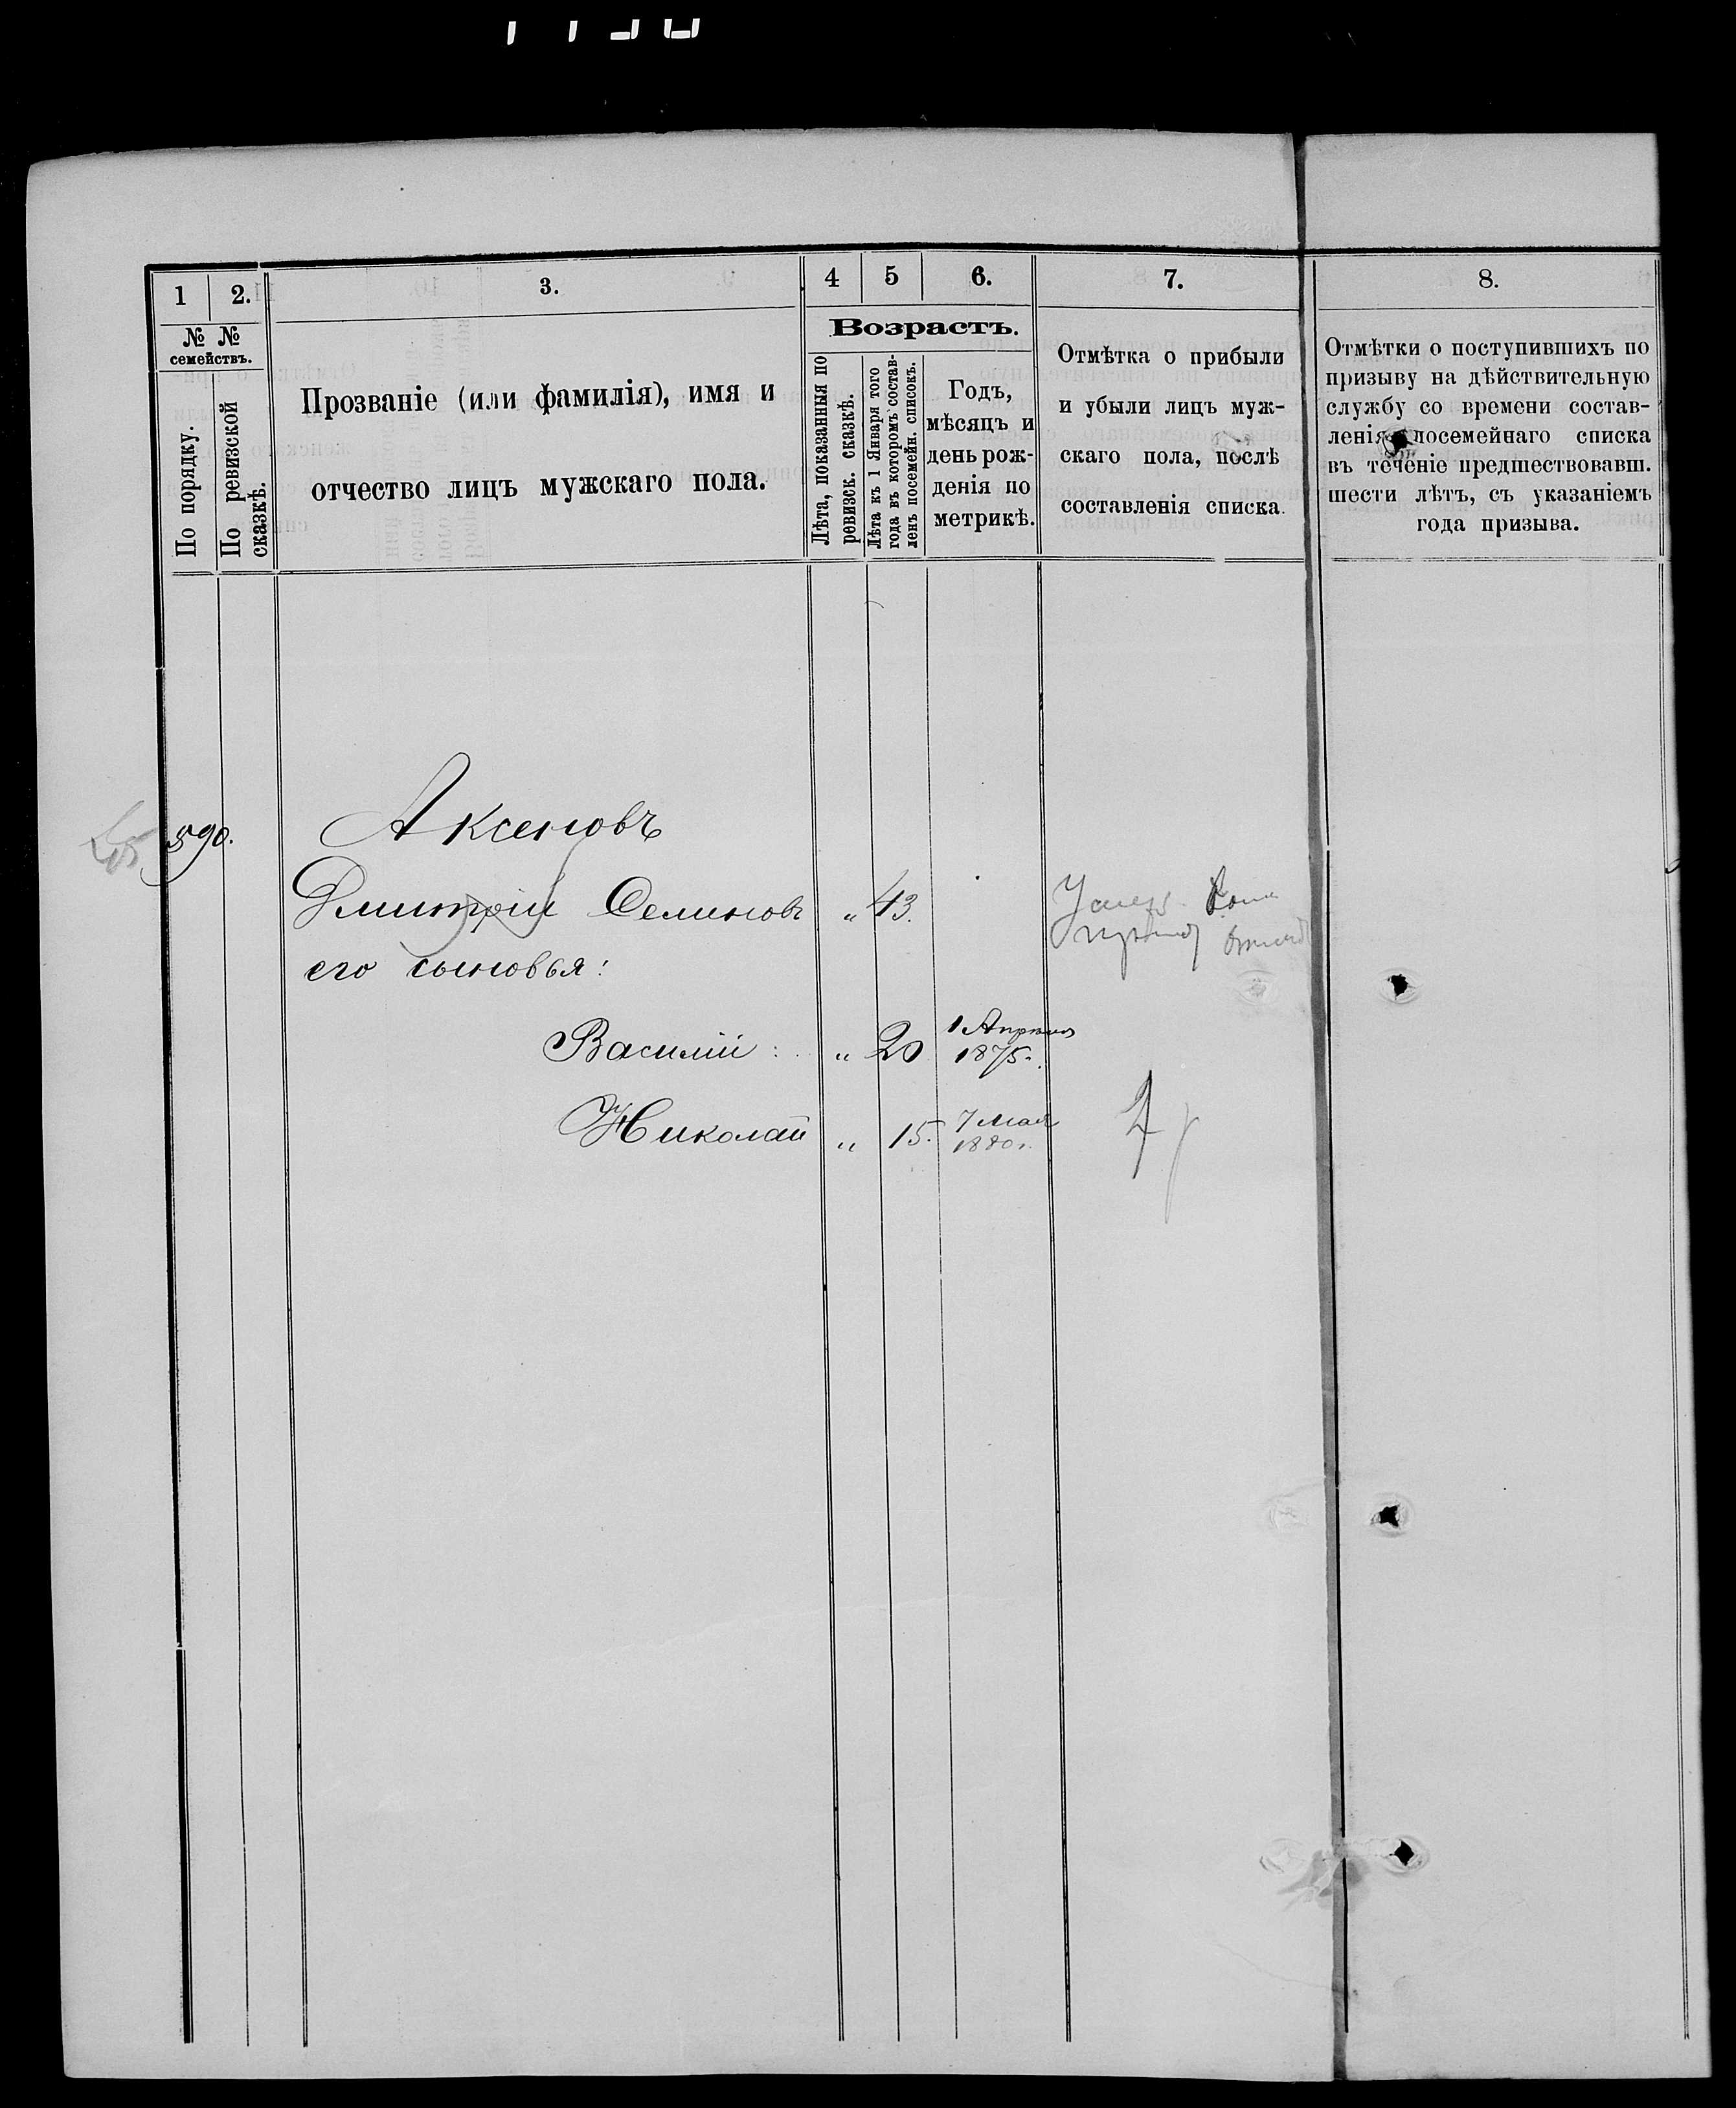 1
2.
3.
4
5
6.
7.
8.
№ №
семействъ.
По порядку.
По ревизской
сказкѣ.
Прозваніе (или фамилія), имя и
отчество лицъ мужскаго пола.
Возрастъ.
Лѣта, показанныя по
ревизск. сказкѣ.
Лѣта къ 1 Января того
года въ которомъ состав-
ленъ посемейн. списокъ.
Годъ,
мѣсяцъ и
день рож-
денія по
метрикѣ.
Отмѣтка о прибыли
и убыли лицъ муж-
скаго пола, послѣ
составленія списка.
Отмѣтки о поступившихъ по
призыву на дѣйствительную
службу со времени состав-
ленія посемейнаго списка
въ теченіе предшествовавш.
шести лѣтъ, съ указаніемъ
года призыва.
590.
Аксеновъ
Дмитрій Семиновъ „ 43.
его сыновья:
Василій: „ 20 1 Апрѣля
1875.
Николай „ 15. 7 Мая
1880 г.